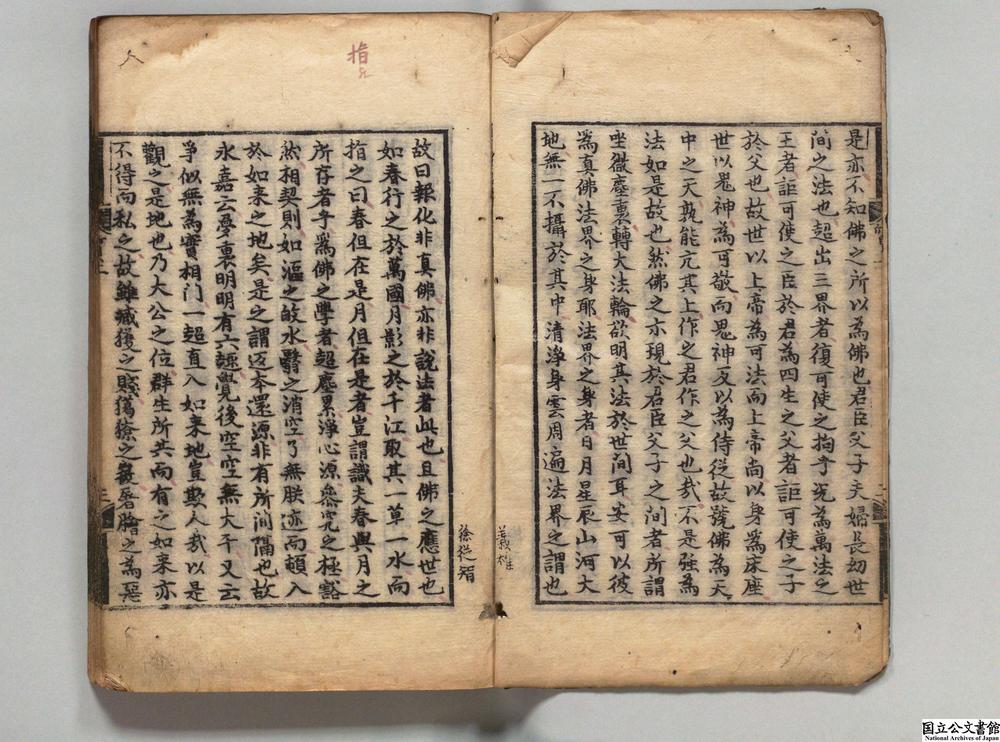 是亦不知佛之所以為佛也君臣父子夫婦長幼世
間之法也超出三界者復可使之拘乎光為萬法之
王者詎可使之臣於君為四生之父者詎可使之子
於父也故世以上帝為可法而上帝尚以身爲床座
世以鬼神為可敬而鬼神反以為侍從故號佛為天
中之天孰能亢其上作之君作之父也哉不是強為
法如是故也然佛之亦現於君臣父子之間者所謂
坐微塵裏轉大法輪欲明其法於世間耳安可以彼
為真佛法界之身耶法界之身者日月星辰山河大
地無一不攝於其中清淨身雲周遍法界之謂也
義雄
徐從智
故曰報化非真佛亦非說法者此也且佛之應世也
如春行之於萬國月影之於千江取其一草一水而
指之曰春但在是月但在是者豈謂識夫春與月之
所存者乎爲佛之學者超塵累淨心源叅究之極豁
然相契則如漚之㪣水翳之消空了無朕迹而頓入
於如来之地矣是之謂返本還源非有所間隔也故
永嘉云夢裏明明有六趣覺後空空無大千又云
爭似無為實相門一超直入如来地豈欺人哉以是
觀之是地也乃大公之位群生所共而有之如来亦
不得而私之故雖臧獲之賤獦獠之
指
國立公文書館
National Archives of Japan